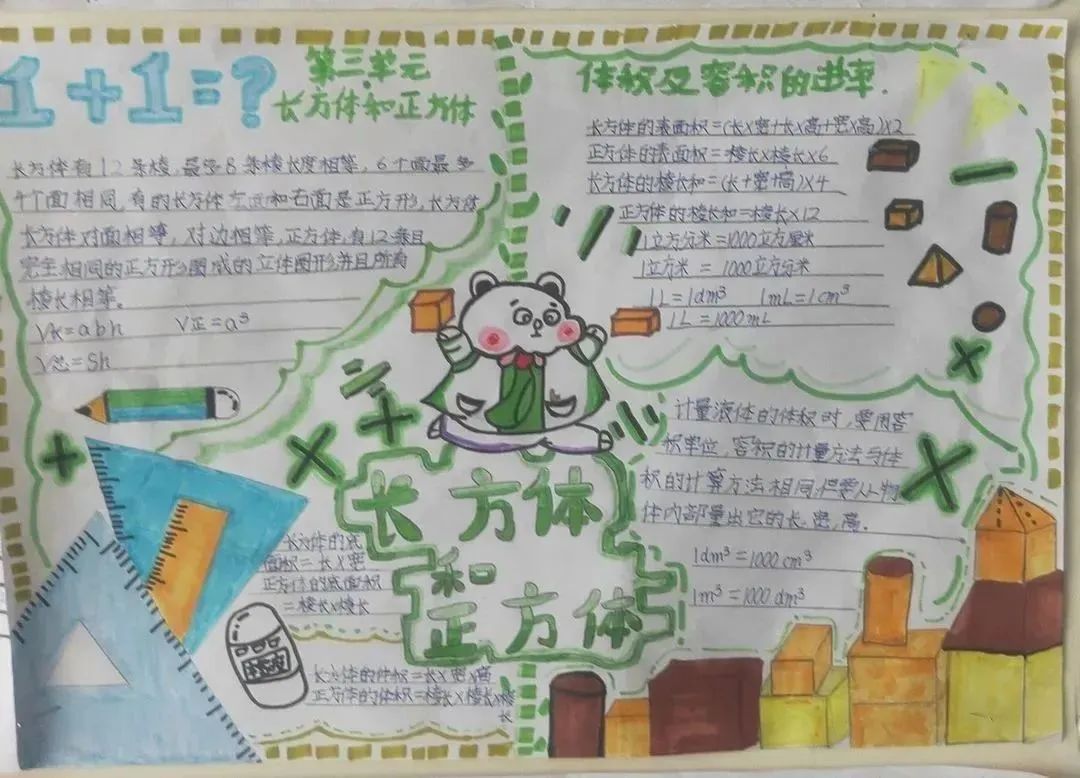 1+1=?
第三单元
长方体和正方体
长方体有12条棱,最多8条棱长度相等,6个面最多
4个面相同,有的长方体左面和右面是正方形,长方体
长方体对面相等,对边相等,正方体,有12条且
完全相同的正方形围成的立体图形并且所有
棱长相等。
V长=abh V正=a³
V总=Sh
体积及容积的进率.
长方体的表面积=(长×宽+长×高+宽×高)×2
正方体的表面积=棱长×棱长×6
长方体的棱长和=(长+宽+高)×4
正方体的棱长和=棱长×12
1立方分米=1000立方厘米
1立方米=1000立方分米
1L=1dm³ 1mL=1cm³
1L=1000mL
计量液体的体积时,要用容
积单位,容积的计量方法与体
积的计算方法相同,但要从物
体内部量出它的长、宽,高.
1dm³=1000cm³
1m³=1000dm³
长方体
和
正方体
长方体的底
面积=长×宽
正方体的底面积
=棱长×棱长
长方体的体积=长×宽×高
正方体的体积=棱长×棱长×棱
长